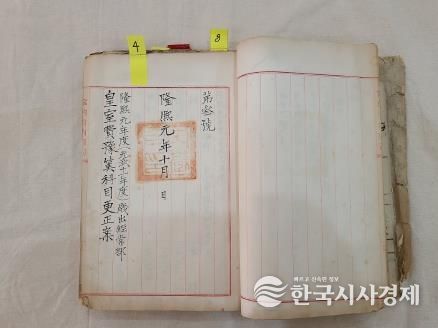 4
8
第參號
隆熙元年十月 日
隆熙元年度(光武十一年度)歲出經常部
皇室費豫算科目更正案
빠르고 신속한 정보
한국시사경제